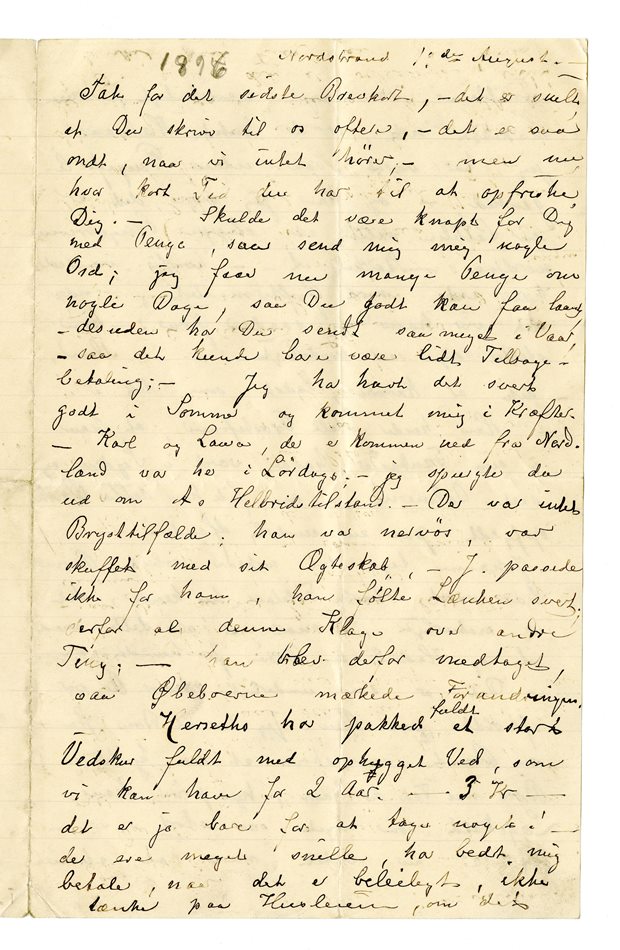 1896 Nordstrand 1ste August. —
Tak for det sidste Brevkort, — det er snilt
at Du skriver til os oftere, — det er saa
ondt, naar vi intet hører, — men nu
hvor kort Tid Du har til at opfriske
Dig. — Skulde det være knapt for Dig
med Penge, saa send mig mig nogle
Ord; jeg faar nu mange Penge om
nogle Dage, saa Du godt kan faa laane,
— desuden har Du sendt saa meget i Vaar,
— saa det kunde bare være lidt Tilbage-
betaling; — Jeg ha havt det svert
godt i Sommer og kommet mig i Kræfter.
— Karl og Laura, der er kommen ned fra Nord-
land var her i Lørdags; — jeg spurgte da
ud om As Helbridstilstand. — Der var intet
Brysttilfælde; han var nervøs, var
skuffet med sit Ægteskab, — J. passede
ikke for ham, han følte Lænken svert,
derfor al denne Klage over andre
Ting; — han blev derfor medtaget,
saa Øbeboerne mærkede Forandringen.
Herseths har pakked fuldt et stort
Vedskur fuldt med ophugget Ved, som
vi kan have for 2 Aar. — 3 Kr —
det er jo bare for at tage noget! —
de ere meget snille, ha bedt mig
betale, naar det er beleiligt, ikke
tænke paa Husleien, om det